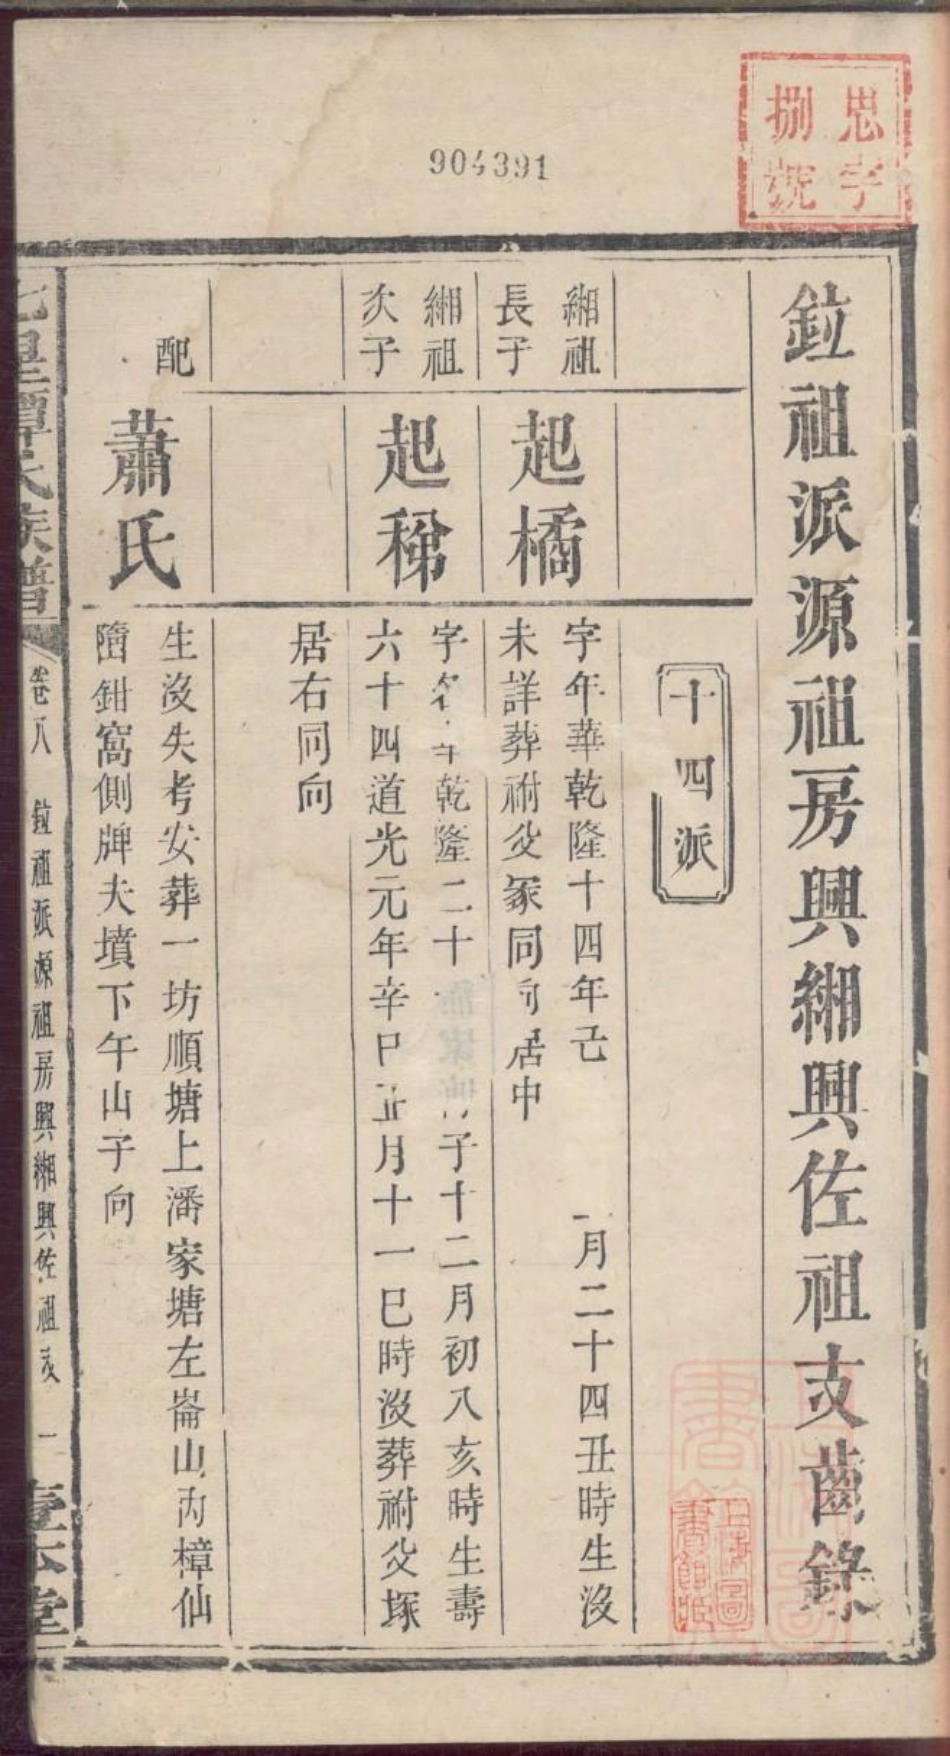 904391
思字
捌號
鉝祖派源祖房興緗興佐祖支齒錄
十四派
緗祖
長子
起橘
字年華乾隆十四年己
月二十四丑時生沒
未詳葬祔父冢同向居中
緗祖
次子
起稊
字
乾隆二十
子十二月初八亥時生壽
六十四道光元年辛巳正月十一巳時沒葬祔父塚
居右同向
配
蕭氏
生沒失考安葬一坊順塘上潘家塘左崙山內樟仙
隝鉗窩側牌夫墳下午山子向
七里譚氏族譜
卷八
鉝祖派源祖房興緗興佐祖支
一
壹本堂
上海圖書館藏